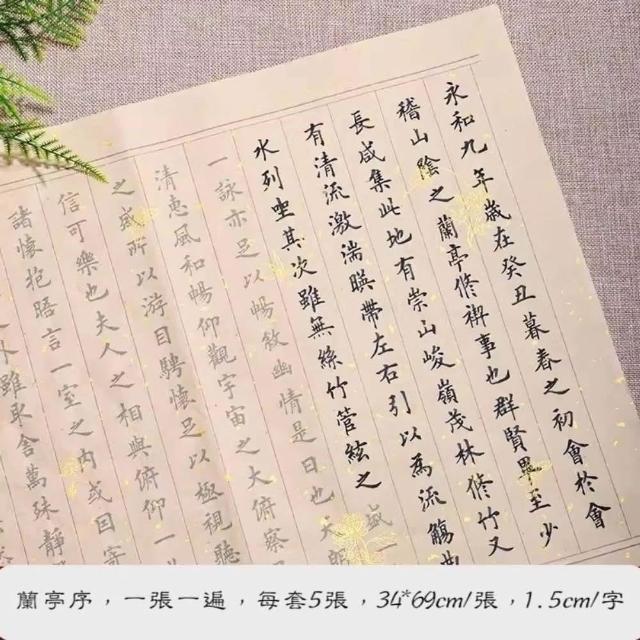 永和九年歲在癸丑暮春之初會於會
稽山陰之蘭亭修禊事也群賢畢至少
長咸集此地有崇山峻嶺茂林修竹又
有清流激湍暎帶左右引以為流觴曲
水列坐其次雖無絲竹管絃之盛一
一詠亦足以暢敘幽情是日也天朗
清惠風和暢仰觀宇宙之大俯察
之盛所以游目騁懷足以極視聽
信可樂也夫人之相與俯仰一
諸懷抱晤言一室之內或因寄
雖取舍萬殊靜
蘭亭序，一張一遍，每套5張，34*69cm/張，1.5cm/字